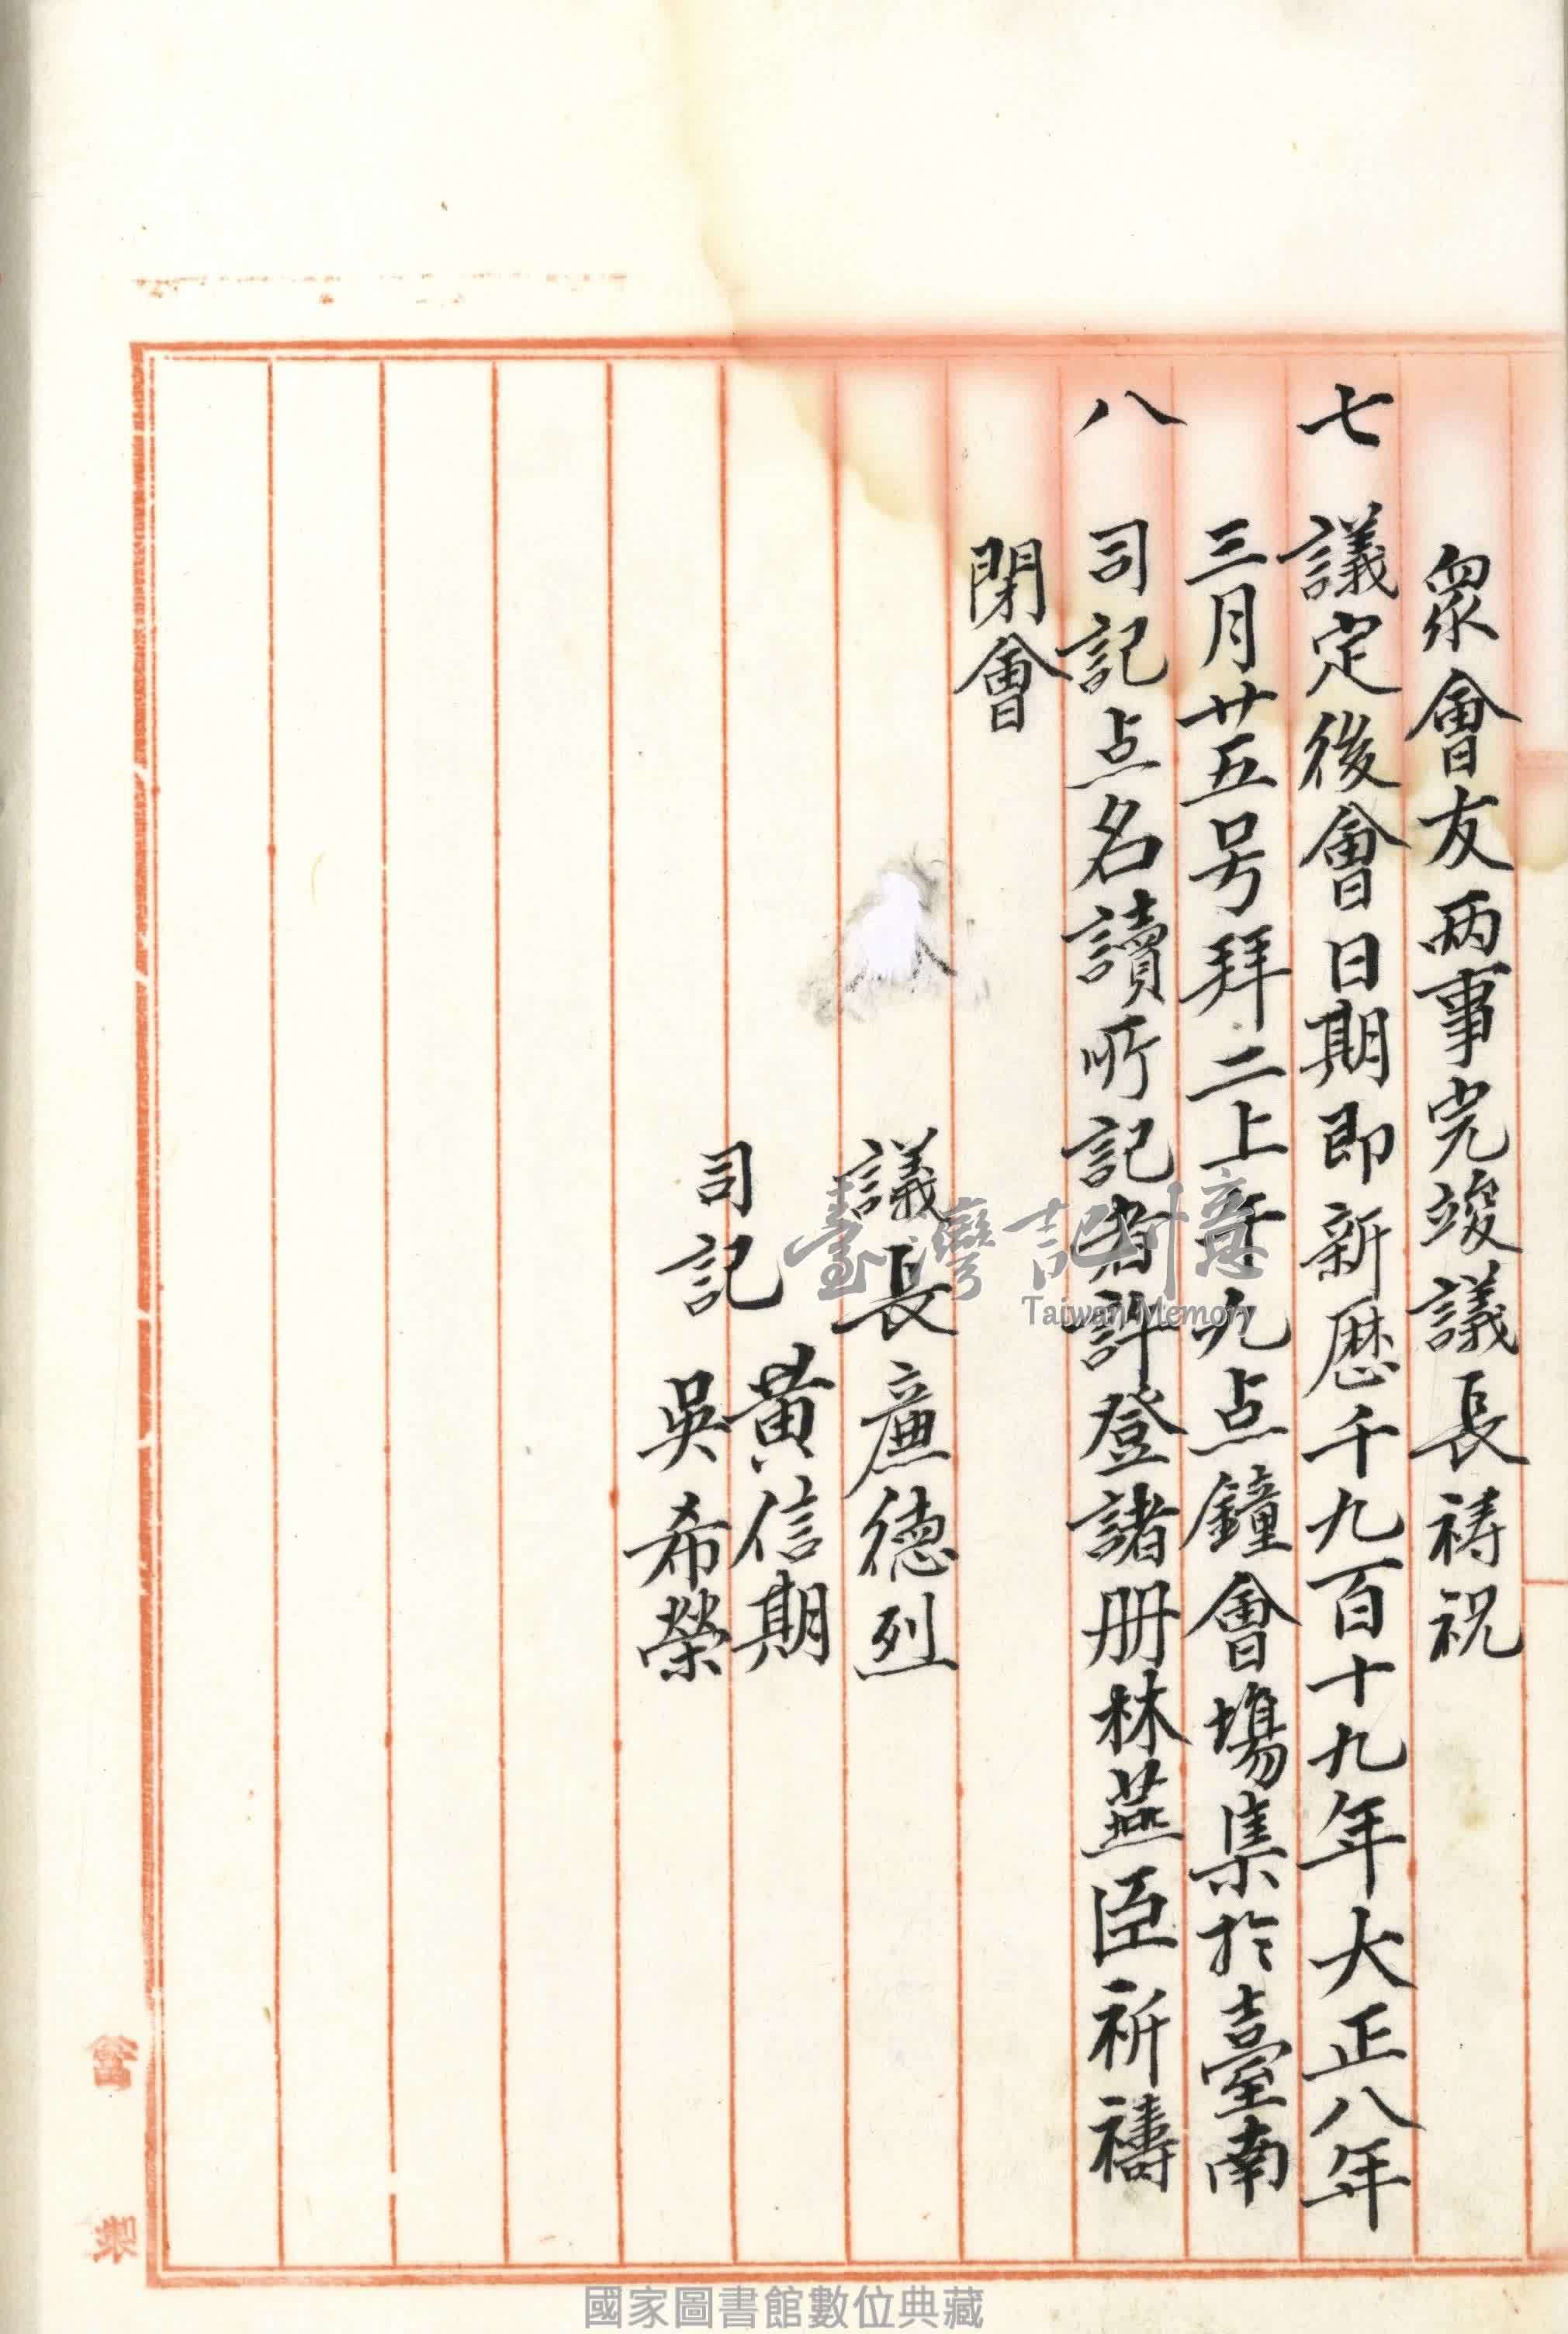 眾會友兩事完竣議長祷祝
七 議定後會日期即新歴千九百十九年大正八年
三月廿五号拜二上午九点鐘會塲集於臺南
八 司記点名讀所記者許登諸册林燕臣祈禱
閉會
議長廉德烈
黃信期
司記
吳希榮
臺灣記憶
Taiwan Memory
國家圖書館數位典藏